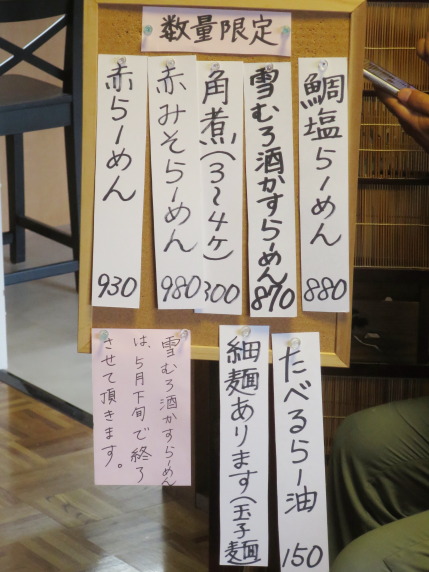 数量限定
鯛塩らーめん
880
雪むろ酒かすらーめん
870
角煮(3〜4ケ)
300
赤みそらーめん
980
赤らーめん
930
たべるらー油
150
細麺あります(玉子麺)
雪むろ酒かすらーめん
は、5月下旬で終了
させて頂きます。